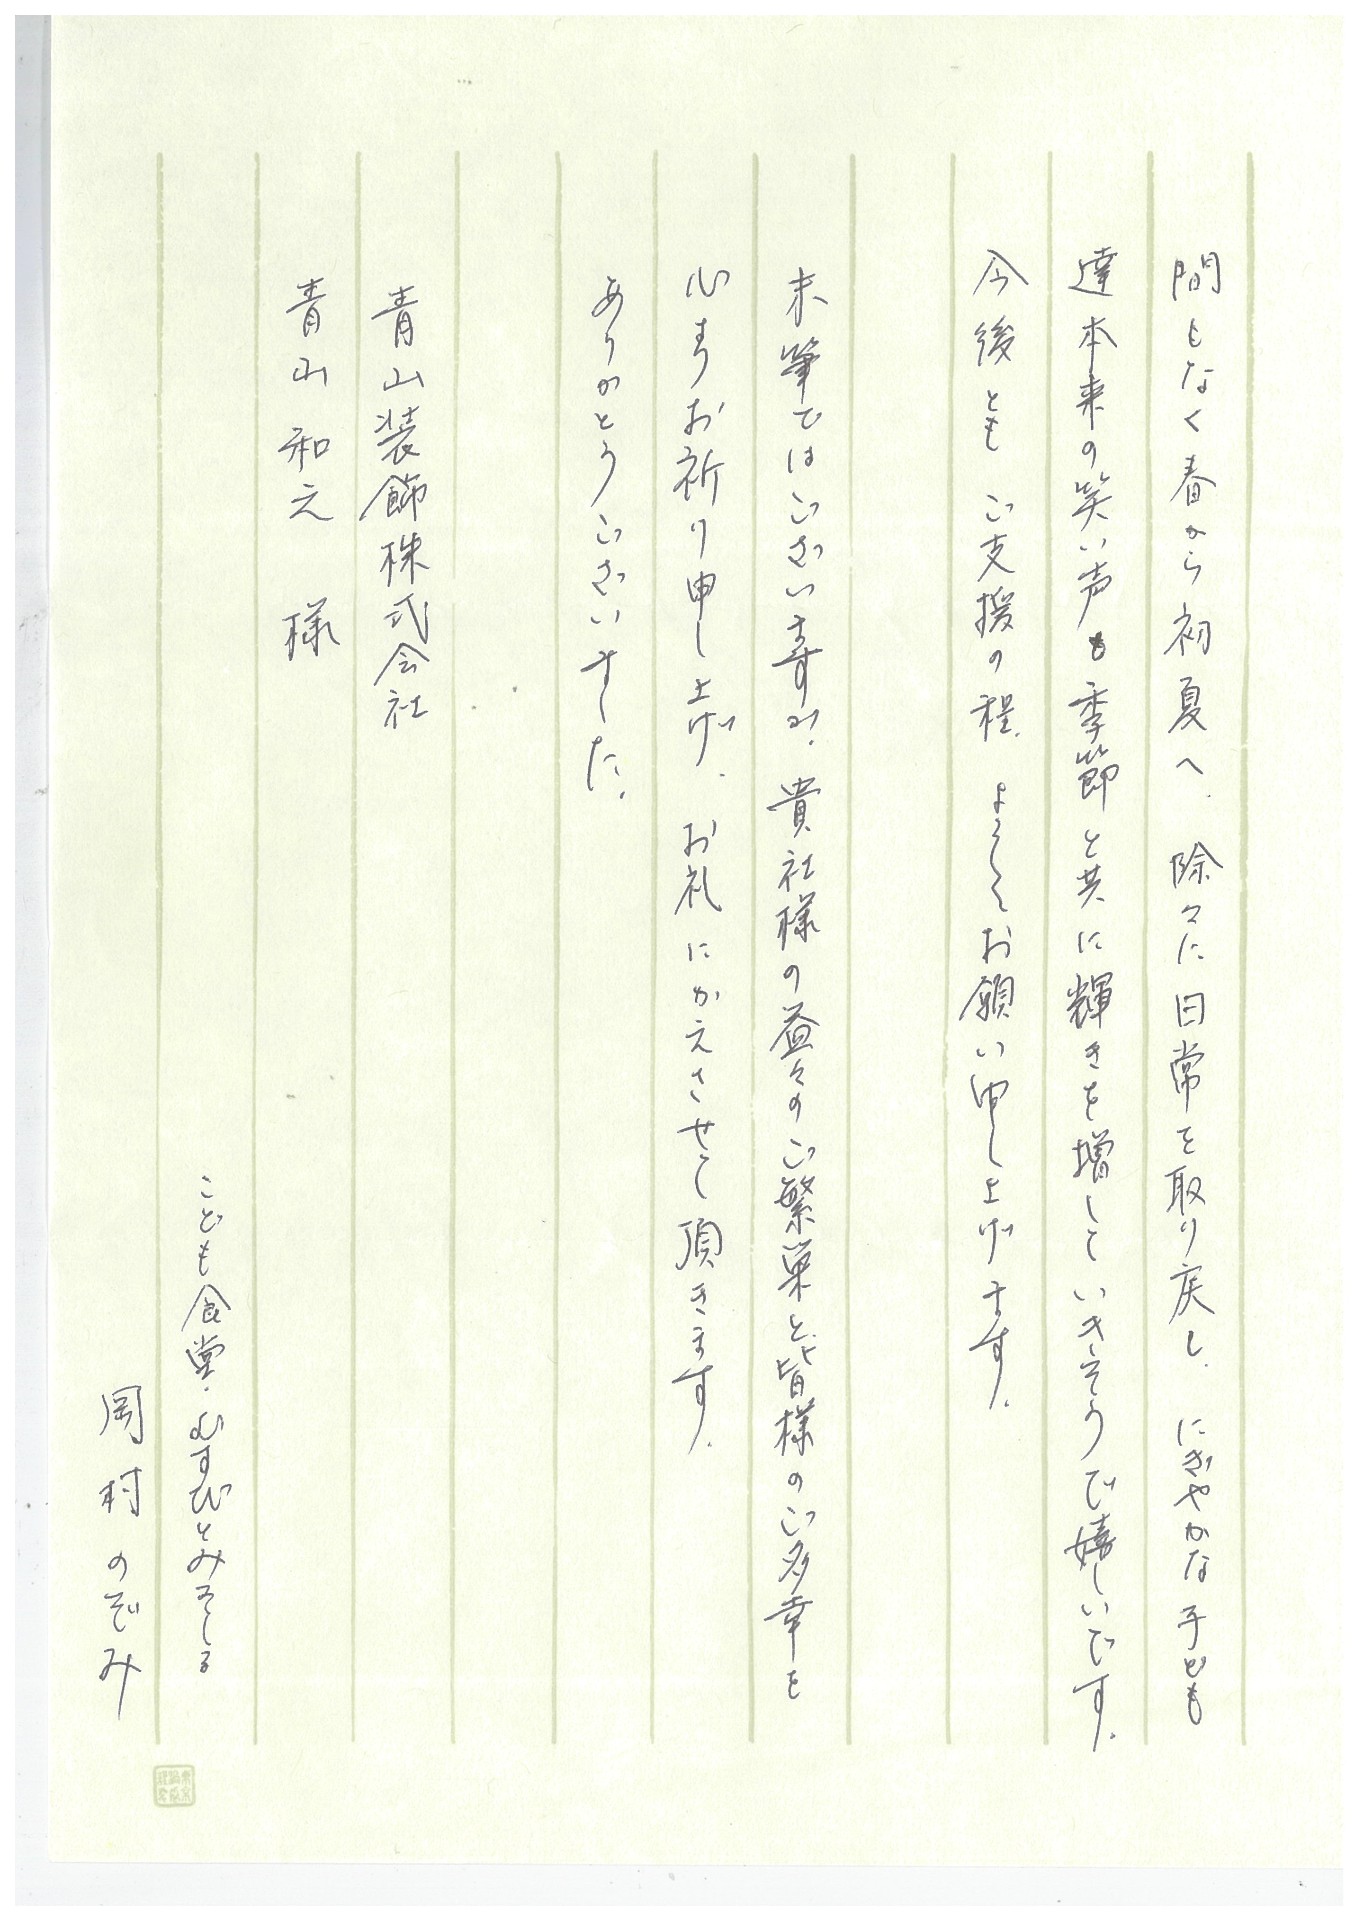 間もなく春から初夏へ、除々に日常を取り戻し、にぎやかな子ども
達本来の笑い声も季節と共に輝きを増していきそうで嬉しいです。
今後ともご支援の程、よろしくお願い申し上げます。
末筆ではございますが、貴社様の益々のご繁栄と、皆様のご多幸を
心よりお祈り申し上げ、お礼にかえさせて頂きます。
ありがとうございました。
青山装飾株式会社
青山和之 様
こども食堂・むすびとみそしる
岡村のぞみ